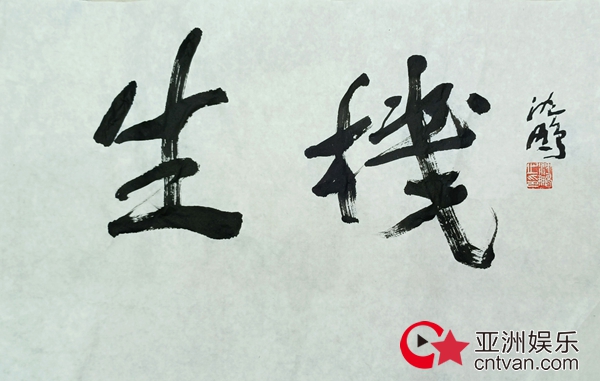 生機
沈鵬
亚洲娱乐
cntvan.com